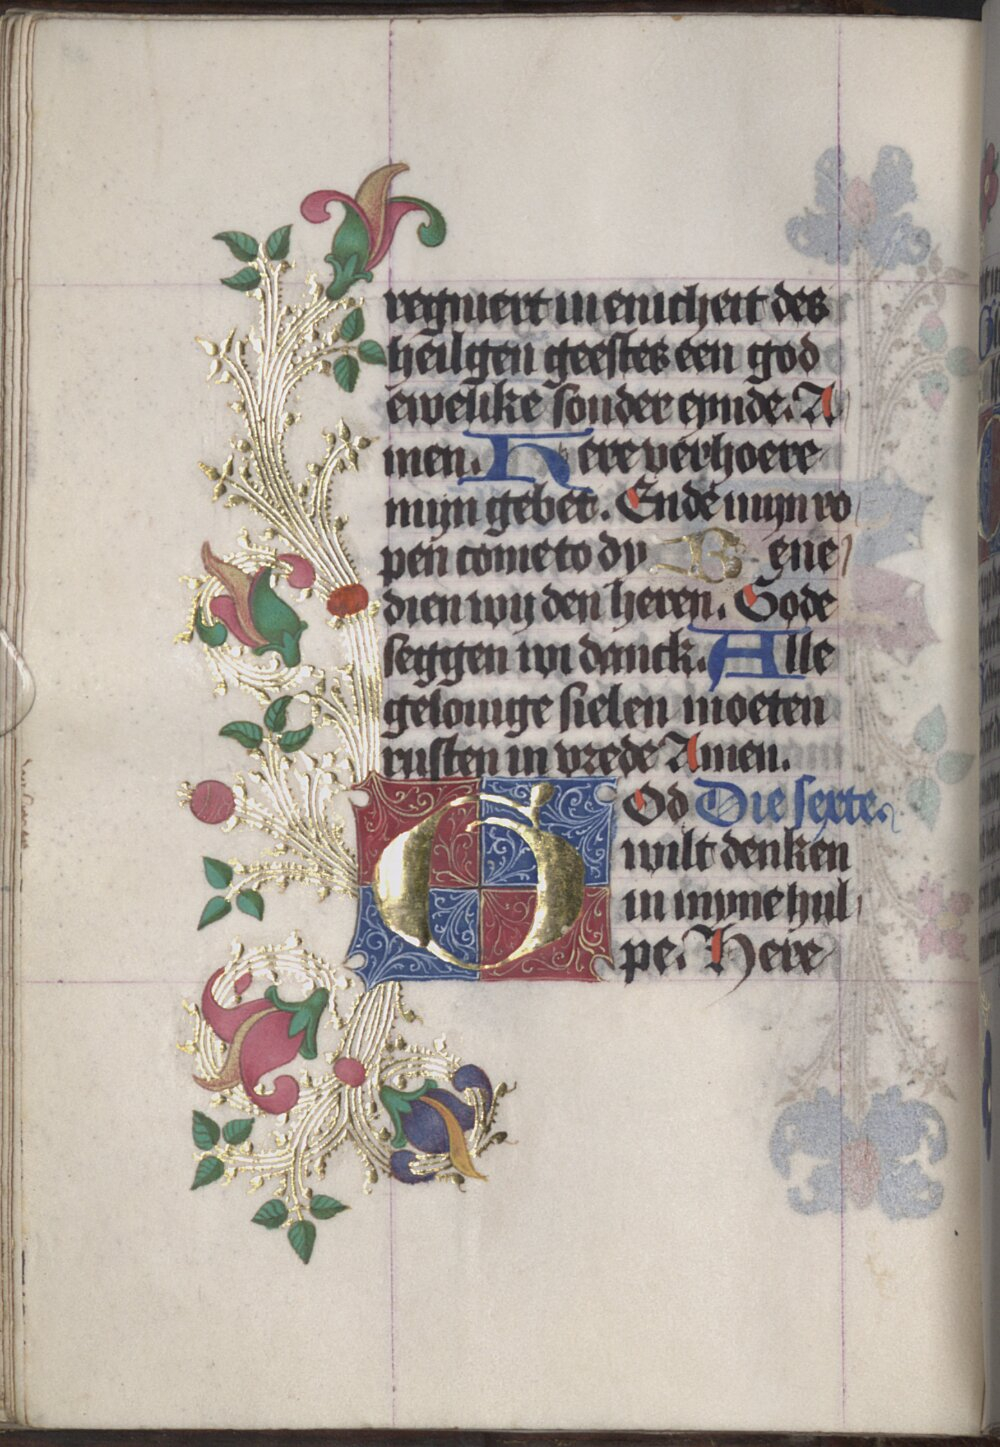 regniert in enicheit des
heilgen geestes een god
ewelike sonder eynde. A
men. Here verhoere
mijn gebet. Ende mijn ro
pen come to dy Bene
dien wy den heren. Gode
seggen wi danck. Alle
gelouige sielen moeten
rusten in vrede Amen.
GOd Die sexte.
wilt denken
in myne hul
pe. Here